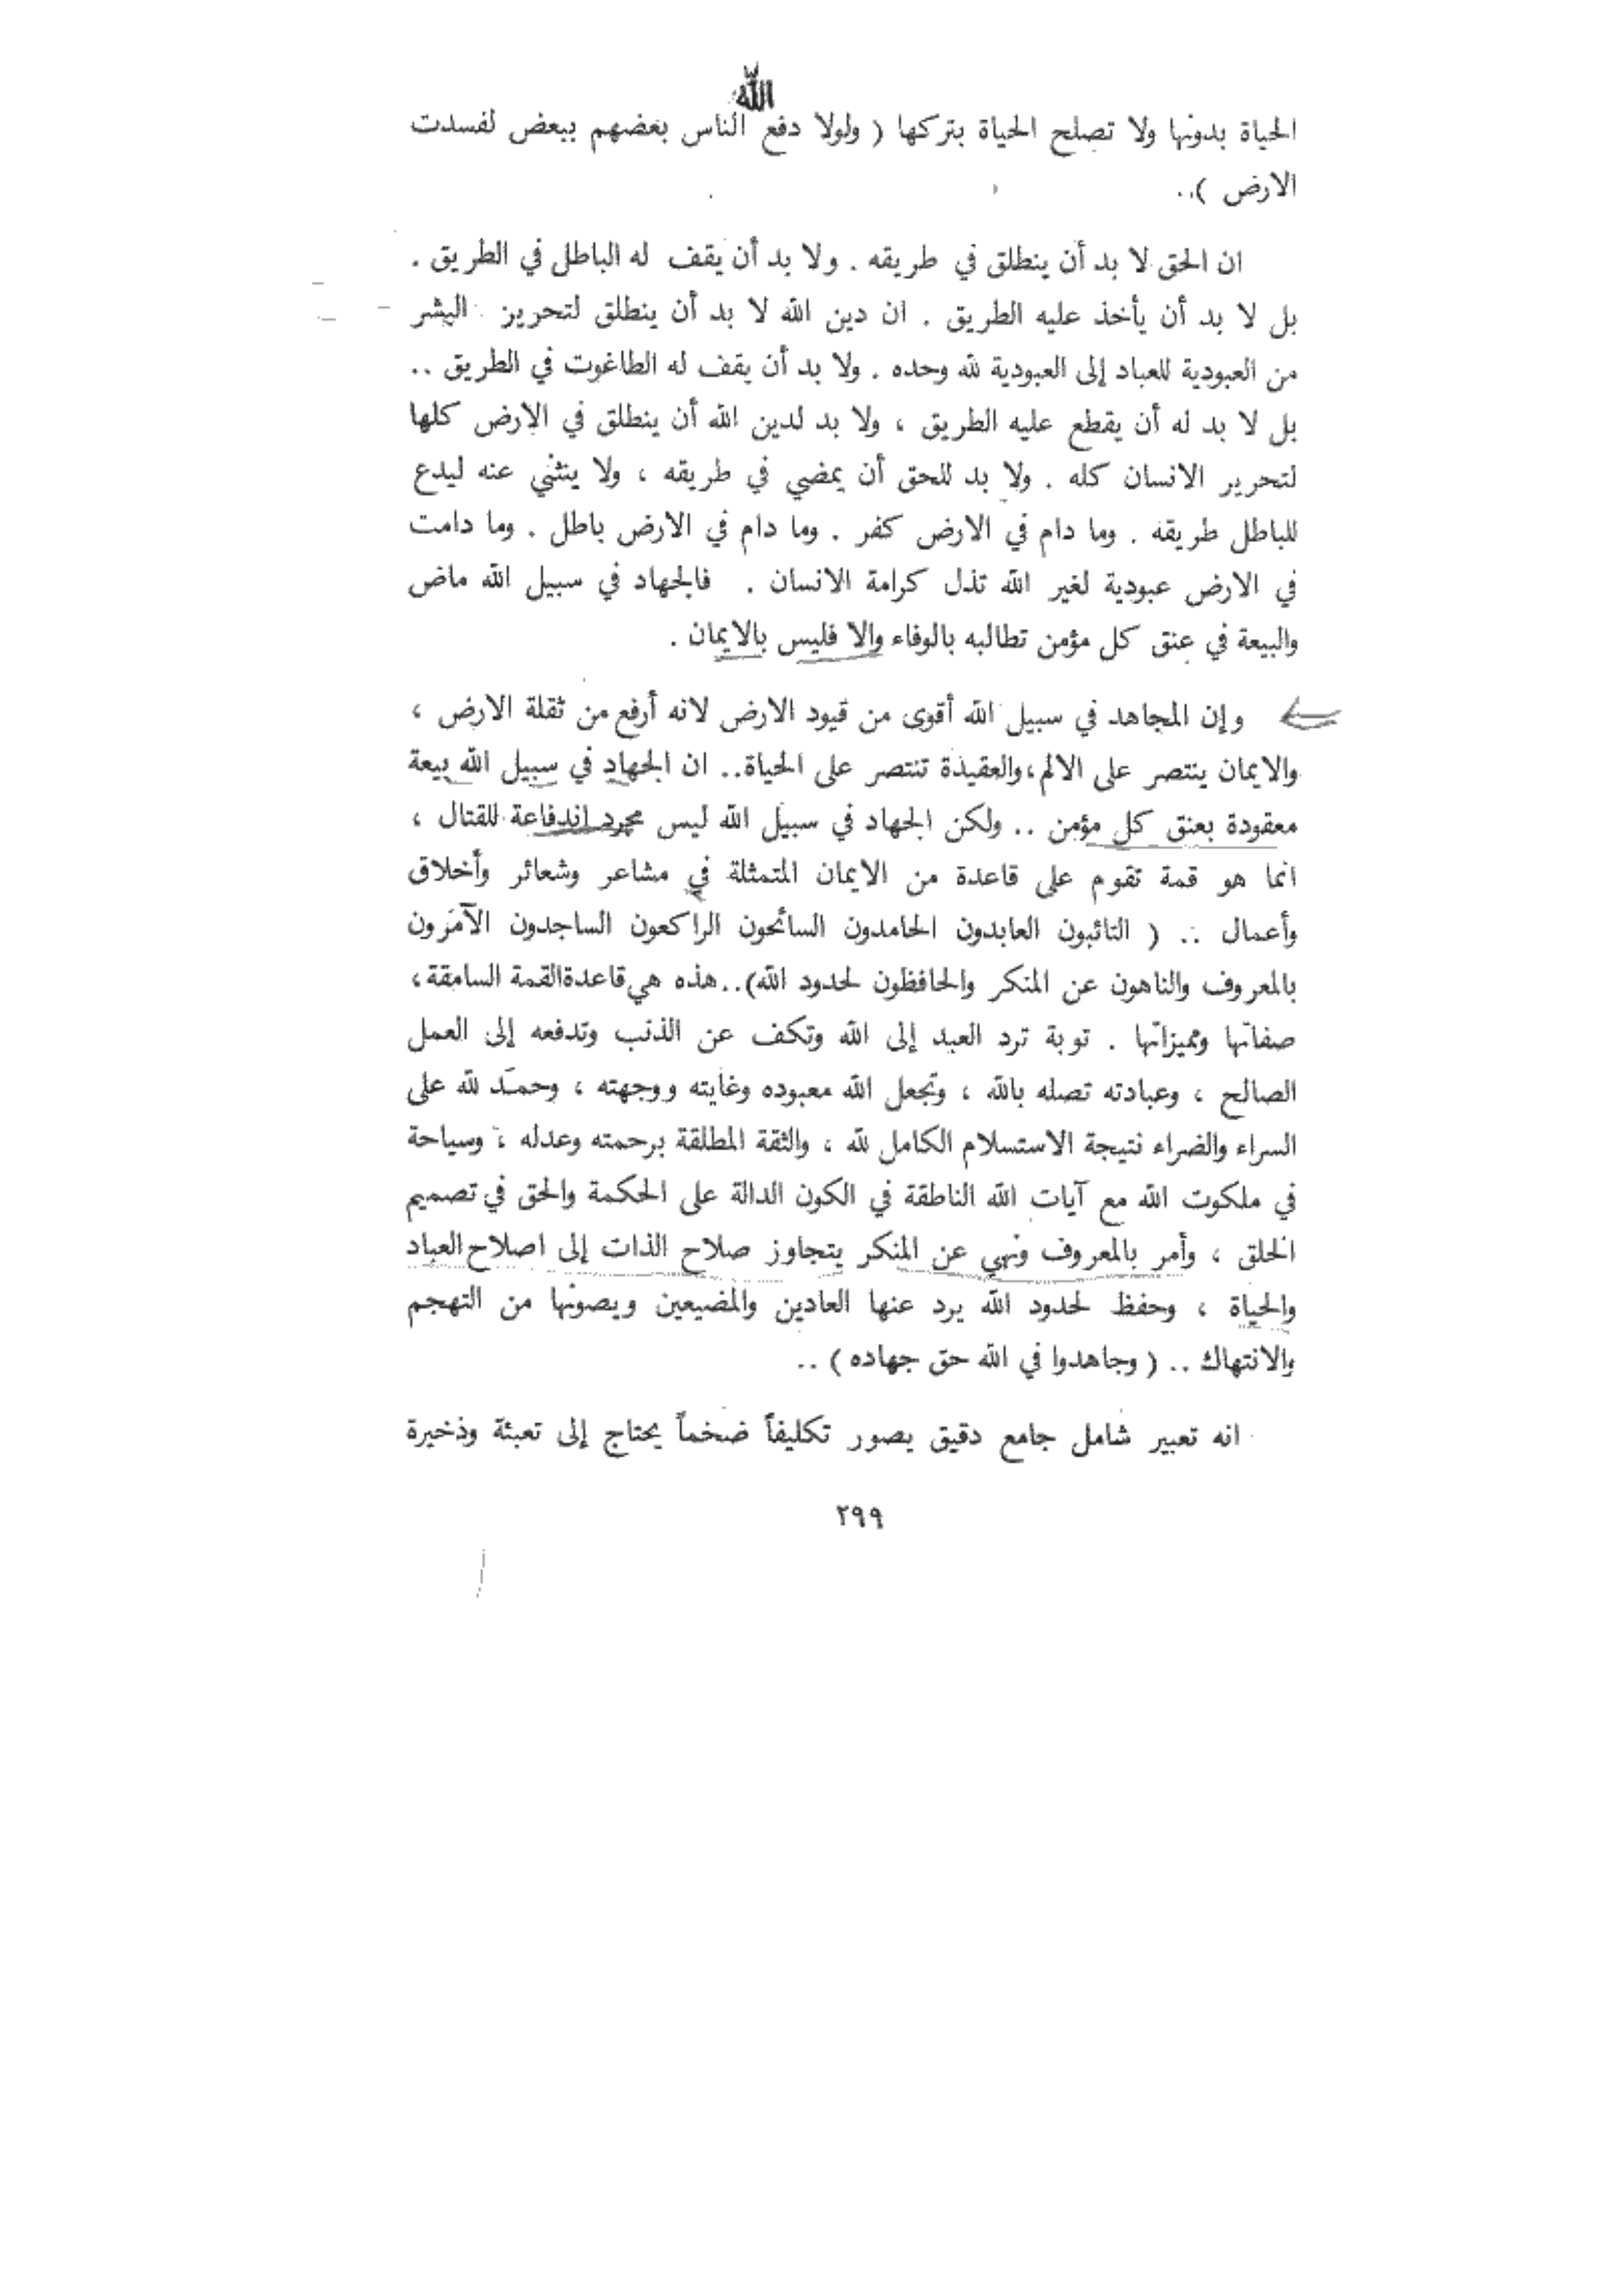 الله
الحياة بدونها ولا تصلح الحياة بتركها ( ولولا دفع الناس بعضهم ببعض لفسدت
الارض )..
ان الحق لا بد أن ينطلق في طريقه . ولا بد أن يقف له الباطل في الطريق .
بل لا بد أن يأخذ عليه الطريق . ان دين الله لا بد أن ينطلق لتحرير البشر
من العبودية للعباد إلى العبودية لله وحده . ولا بد أن يقف له الطاغوت في الطريق ..
بل لا بد له أن يقطع عليه الطريق ، ولا بد لدين الله أن ينطلق في الارض كلها
لتحرير الانسان كله . ولا بد للحق أن يمضي في طريقه ، ولا ينثني عنه ليدع
للباطل طريقه . وما دام في الارض كفر . وما دام في الارض باطل . وما دامت
في الارض عبودية لغير الله تذل كرامة الانسان . فالجهاد في سبيل الله ماض
والبيعة في عنق كل مؤمن تطالبه بالوفاء والا فليس بالايمان .
وإن المجاهد في سبيل الله أقوى من قيود الارض لانه أرفع من ثقلة الارض ،
والايمان ينتصر على الالم،والعقيدة تنتصر على الحياة.. ان الجهاد في سبيل الله بيعة
معقودة بعنق كل مؤمن .. ولكن الجهاد في سبيل الله ليس مجرد اندفاعة للقتال ،
انما هو قمة تقوم على قاعدة من الايمان المتمثلة في مشاعر وشعائر وأخلاق
وأعمال .. ( التائبون العابدون الحامدون السائحون الراكعون الساجدون الآمرون
بالمعروف والناهون عن المنكر والحافظون لحدود الله)..هذه هي قاعدةالقمة السامقة،
صفاتها ومميزاتها . توبة ترد العبد إلى الله وتكف عن الذنب وتدفعه إلى العمل
الصالح ، وعبادته تصله بالله ، وتجعل الله معبوده وغايته ووجهته ، وحمد لله على
السراء والضراء نتيجة الاستسلام الكامل لله ، والثقة المطلقة برحمته وعدله ، وسياحة
في ملكوت الله مع آيات الله الناطقة في الكون الدالة على الحكمة والحق في تصميم
الخلق ، وأمر بالمعروف ونهي عن المنكر يتجاوز صلاح الذات إلى اصلاح العباد
والحياة ، وحفظ لحدود الله يرد عنها العادين والمضيعين ويصونها من التهجم
والانتهاك .. ( وجاهدوا في الله حق جهاده ) ..
انه تعبير شامل جامع دقيق يصور تكليفاً ضخماً يحتاج إلى تعبئة وذخيرة
٢٩٩